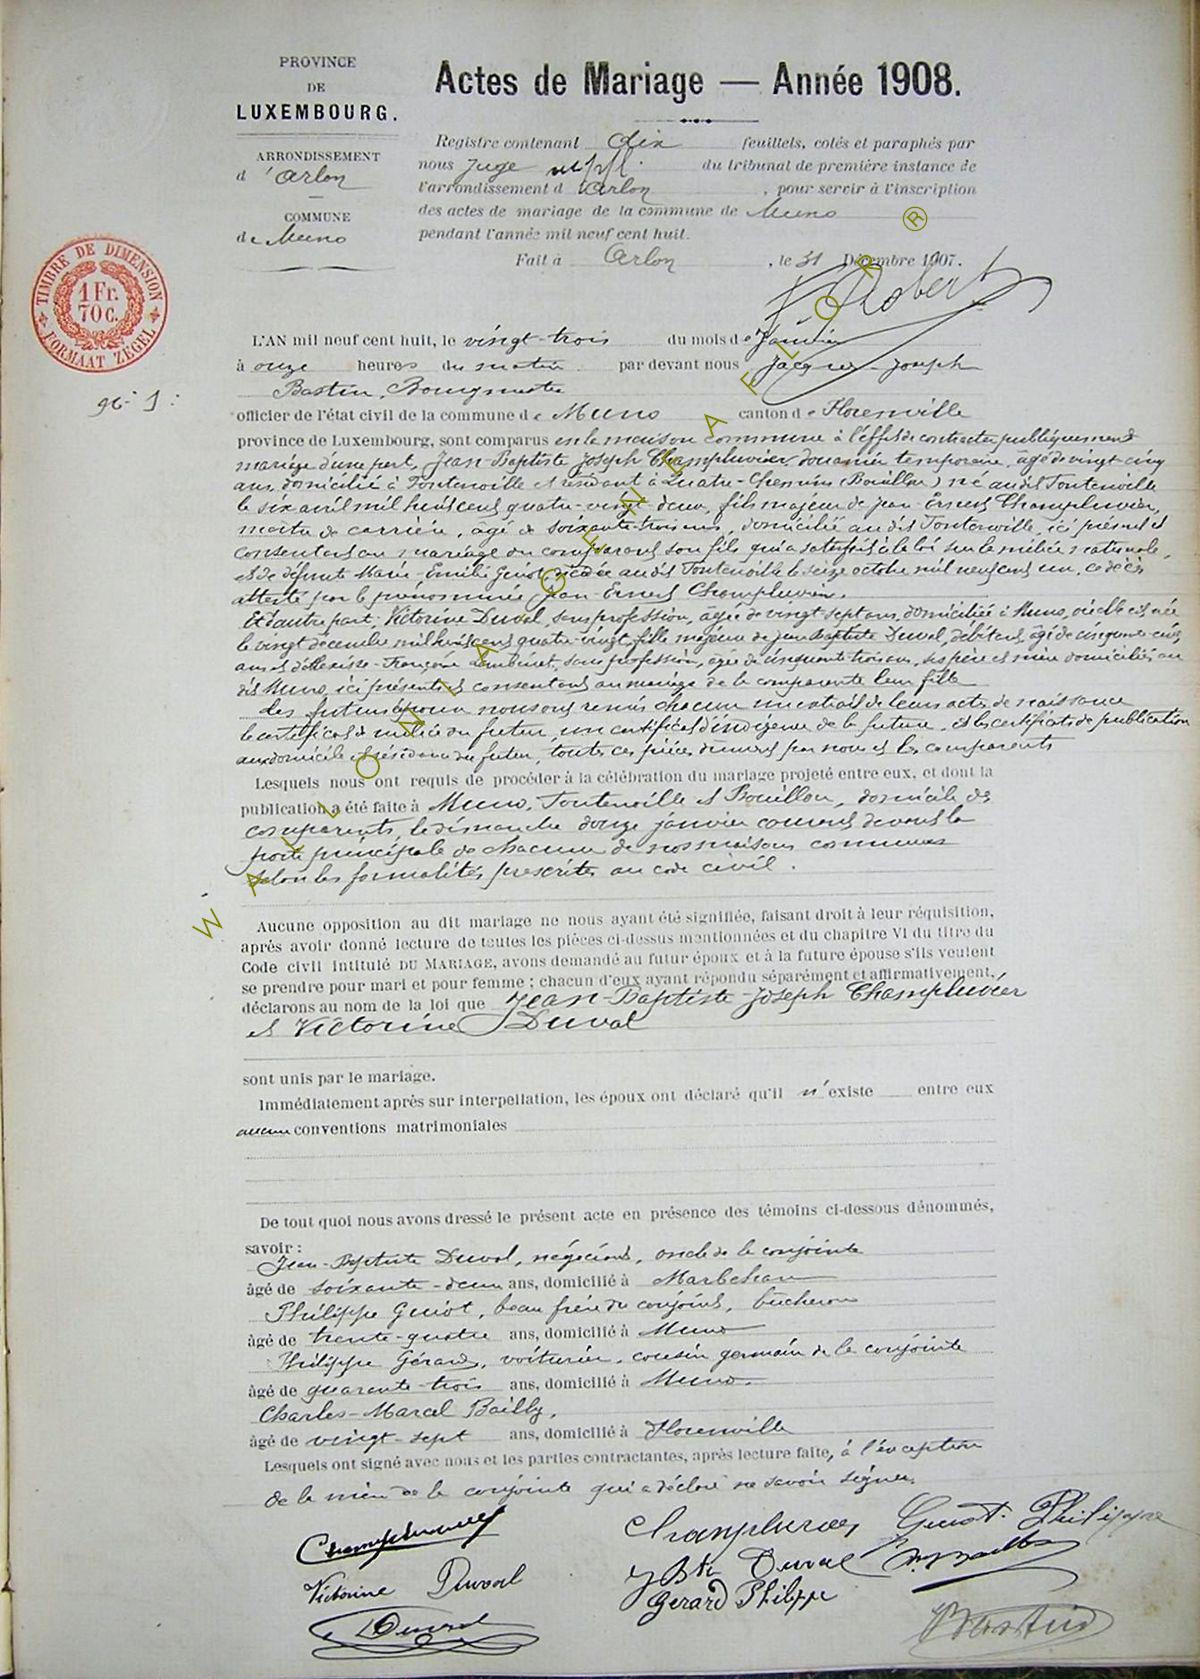 PROVINCE
DE
LUXEMBOURG.
ARRONDISSEMENT
d'Arlon
COMMUNE
de Muno
TIMBRE DE DIMENSION
1 Fr.
70 c.
FORMAAT ZEGEL
Actes de Mariage — Année 1908.
Registre contenant dix feuillets, cotés et paraphés par
nous Juge du tribunal de première instance de
l'arrondissement d'Arlon, pour servir à l'inscription
des actes de mariage de la commune de Muno
pendant l'année mil neuf cent huit.
Fait à Arlon, le 31 Décembre 1907.
Robert
L'AN mil neuf cent huit, le vingt-trois du mois de Janvier
à onze heures du matin par devant nous Jacques-Joseph
Bastin, Bourgmestre
officier de l'état civil de la commune de Muno canton de Florenville
province de Luxembourg, sont comparus en la maison commune à l'effet de contracter publiquement
mariage d'une part, Jean-Baptiste Joseph Champluvier, douanier temporaire, âgé de vingt-cinq
ans, domicilié à Fontenoille et résidant à Quatre-Chemins (Bouillon) né au dit Fontenoille
le six avril mil huit cent quatre-vingt-deux, fils majeur de Jean-Ernest Champluvier,
maître de carrière, âgé de soixante-trois ans, domicilié au dit Fontenoille, ici présent et
consentant au mariage du comparant son fils qui a satisfait à la loi sur la milice nationale,
et de défunte Marie-Emilie Guiot, décédée au dit Fontenoille le seize octobre mil neuf cent un, ce décès
attesté par le prénommé Jean-Ernest Champluvier.
Et d'autre part, Victorine Duval, sans profession, âgée de vingt-sept ans, domiciliée à Muno, où elle est née
le vingt décembre mil huit cent quatre-vingt, fille majeure de Jean-Baptiste Duval, débitant, âgé de cinquante-cinq
ans et d'Alexise-Françoise Lambinet, sans profession, âgée de cinquante-trois ans, ses père et mère domiciliés au
dit Muno, ici présents et consentant au mariage de la comparante leur fille
Les futurs époux nous ont remis chacun un extrait de leurs actes de naissance
le certificat de milice du futur, un certificat d'indigence de la future, et les certificats de publication
aux domicile et résidence du futur, toutes ces pièces dûment par nous et les comparants
Lesquels nous ont requis de procéder à la célébration du mariage projeté entre eux, et dont la
publication a été faite à Muno, Fontenoille et Bouillon, domicile des
comparants, le dimanche douze janvier courant devant la
porte principale de chacune de nos maisons communes
selon les formalités prescrites au code civil.
Aucune opposition au dit mariage ne nous ayant été signifiée, faisant droit à leur réquisition,
après avoir donné lecture de toutes les pièces ci-dessus mentionnées et du chapitre VI du titre du
Code civil intitulé DU MARIAGE, avons demandé au futur époux et à la future épouse s'ils veulent
se prendre pour mari et pour femme ; chacun d'eux ayant répondu séparément et affirmativement,
déclarons au nom de la loi que Jean-Baptiste-Joseph Champluvier
et Victorine Duval
sont unis par le mariage.
Immédiatement après sur interpellation, les époux ont déclaré qu'il n'existe entre eux
aucune conventions matrimoniales
De tout quoi nous avons dressé le présent acte en présence des témoins ci-dessous dénommés,
savoir :
Jean-Baptiste Duval, négociant, oncle de la conjointe
âgé de soixante-deux ans, domicilié à Marbehan
Philippe Guiot, beau frère du conjoint, bûcheron
âgé de trente-quatre ans, domicilié à Muno
Philippe Gérard, voiturier, cousin germain de la conjointe
âgé de quarante-trois ans, domicilié à Muno.
Charles-Marcel Bailly,
âgé de vingt-sept ans, domicilié à Florenville
Lesquels ont signé avec nous et les parties contractantes, après lecture faite, à l'exception
de la mère de la conjointe qui a déclaré ne savoir signer.
Champluvier
Champluvier
Guiot. Philippe
Victorine Duval
JBte Duval
Bailly
Gerard Philippe
Duval
Bastin
WALLONIA
®